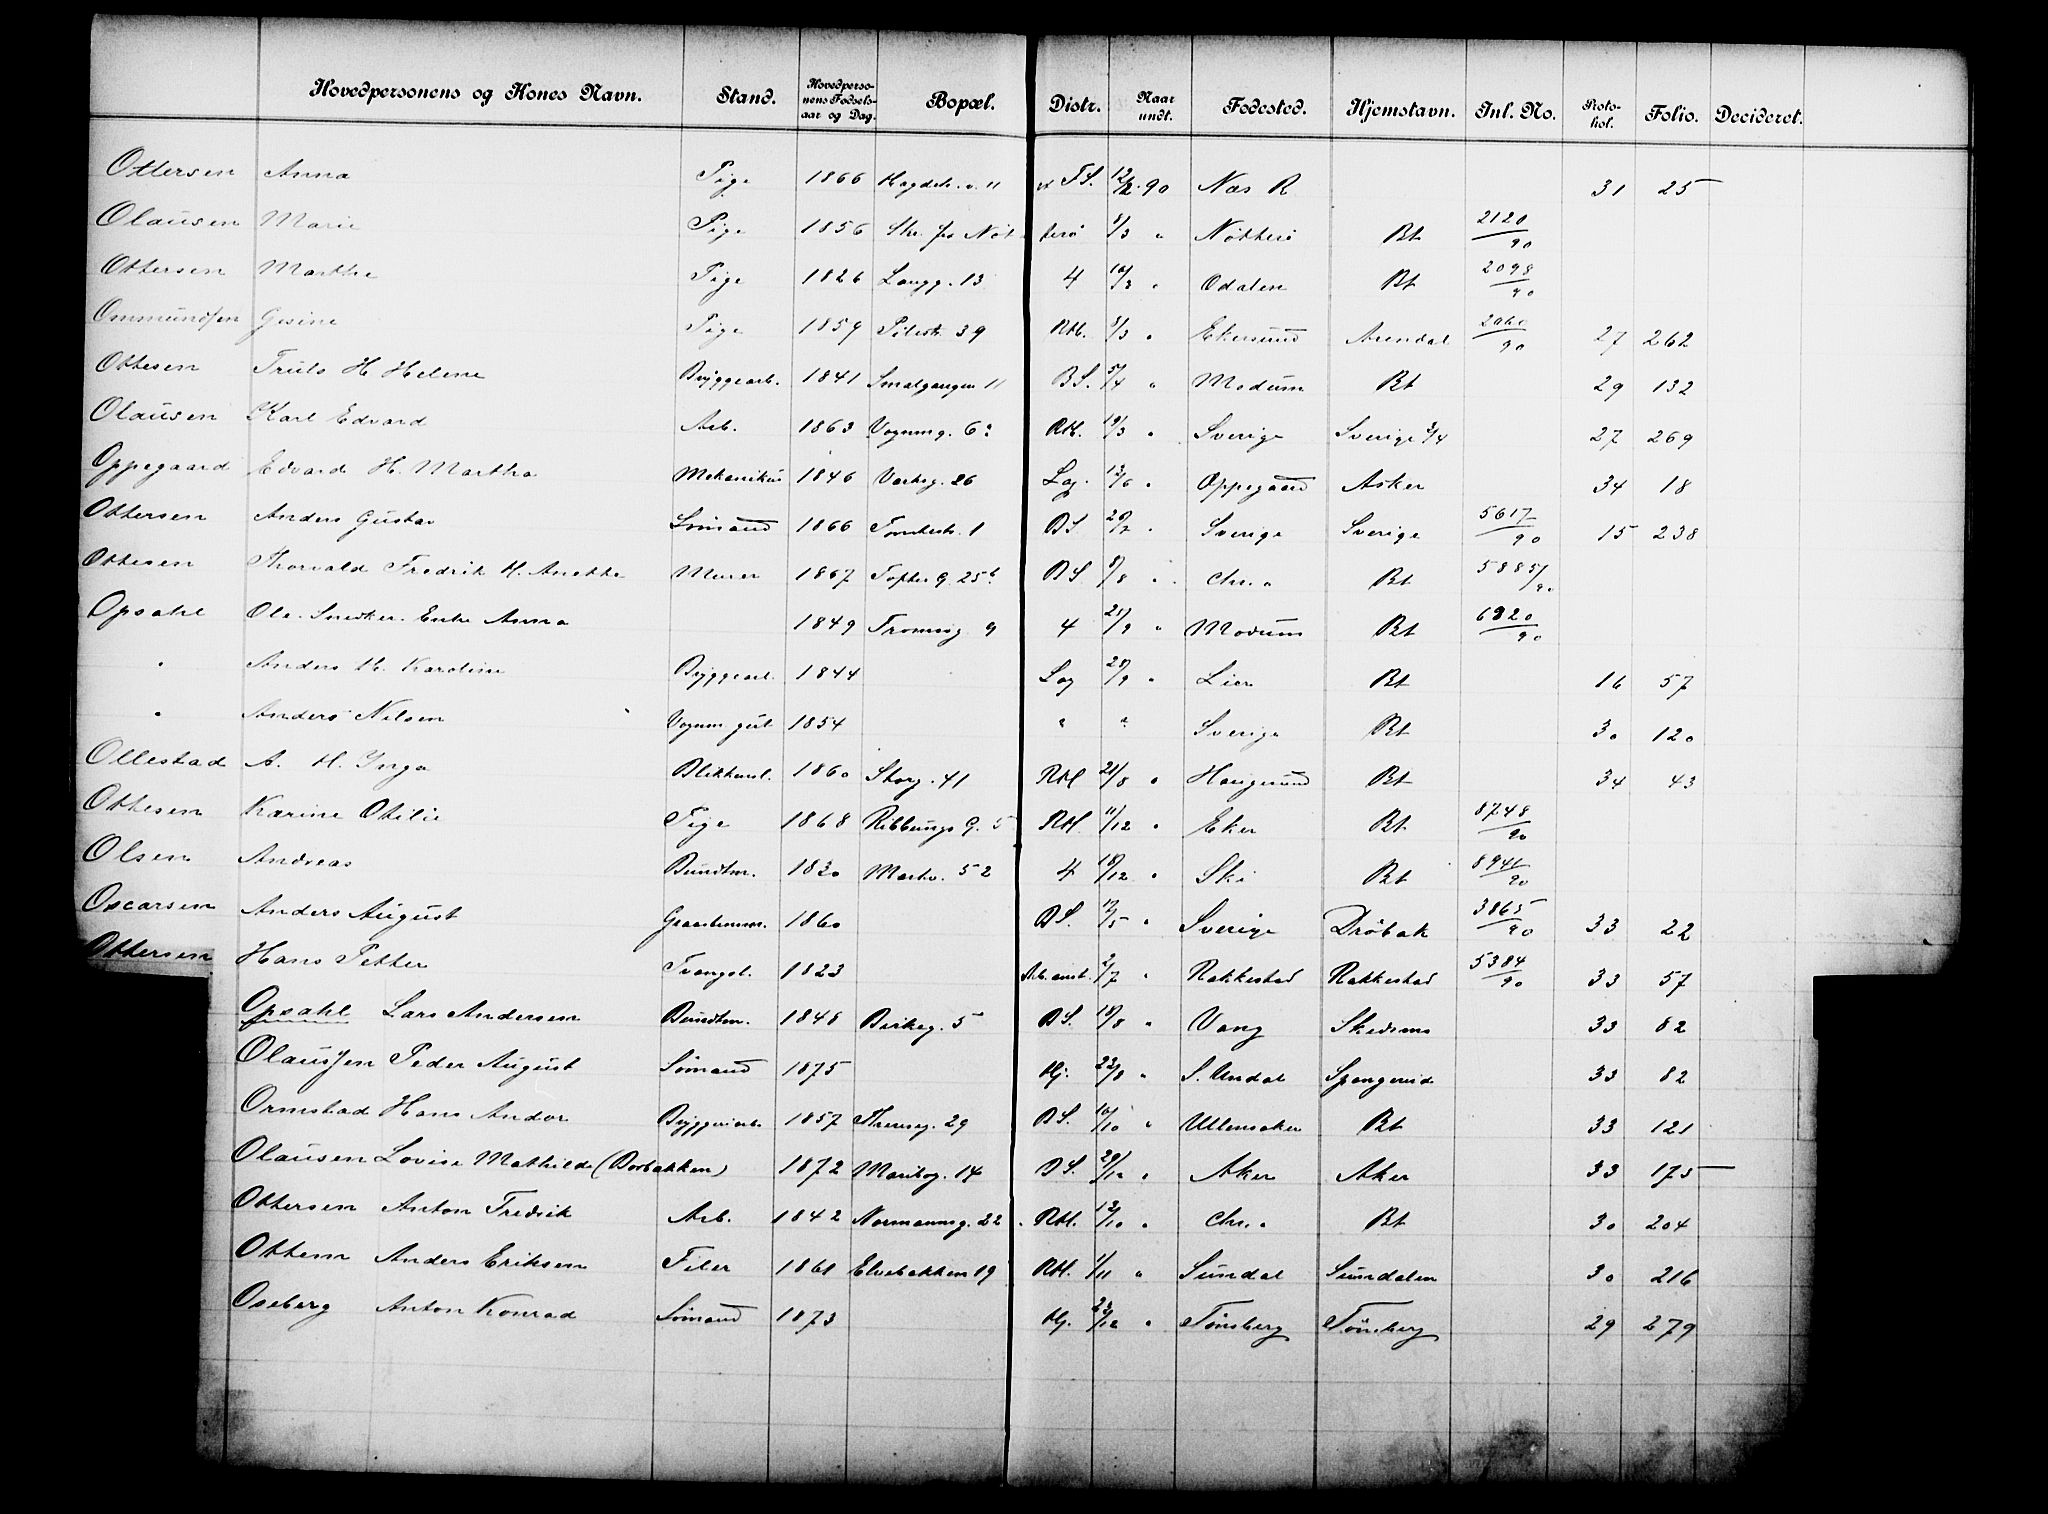 Hovedpersonens og Kones Navn. Stand. Hovedperso-nens Fødsels-aar og Dag. Bopæl. Distr. Naar undt. Fødested. Hjemstavn. Inl. No. Proto-kol. Folio. Decideret.
Ottersen Anna Pige 1866 T.S. 12/2 90 Næs R 31 25
Olausen Marie Pige 1856 Nøt terö 8/3 " Nötterö Bt 2120/90
Ottersen Marthe Pige 1826 Langg. 13 4 10/3 " Odalen Bt 2098/90
Ommundsen Gesine Pige 1859 Pilestr. 39 RH. 8/3 " Ekersund Arendal 2060/90 27 262
Ottesen Truls H Helene Byggearb. 1841 Smalgangen 11 BS. 5/4 " Modum Bt 29 132
Olausen Karl Edvard Arb. 1863 Vognmg. 6 RH. 19/3 " Sverige Sverige 2/4 27 269
Oppegaard Edvard H. Martha Mekanikus 1846 26 Lag. 12/6 " Oppegaard Asker 34 18
Ottersen Anders Gustav Sömand 1866 Tomtestr. 1 BS 20/7 " Sverige Sverige 5617/90 15 238
Ottesen Thorvald Fredrik H. Anette Murer 1867 Toftes g. 25b BS 8/8 " Chr.a Bt 5885/90
Opsahl Ole Snedker Enke Anna 1849 Tromsøg. 9 4 25/9 " Modum Bt 6820/90
" Anders H. Karoline Byggearb. 1844 Lag 29/9 " Lier Bt 16 57
" Anders Nilsen " Vognm. gut 1854 " " Sverige Bt 30 120
Ollestad A. H. Inga Blikkensl. 1860 Storg. 41 RH 21/8 " Haugesund Bt 34 43
Ottesen Karine Otilie Pige 1868 Ribbungs g. 5 RH. 11/12 " Eker Bt 8748/90
Olsen Andreas Bundtm. 1830 Markv. 52 4 18/12 " Ski Bt 8941/90
Oscarsen Anders August 1860 BS. 17/5 " Sverige Dröbak 3865/90 33 22
Ottersen Hans Petter Tvangsl. 1823 Arb. anst. 2/7 " Rakkestad Rakkestad 5384/90 33 57
Opsahl Lars Andersen Bundtm. 1848 Birkeg. 5 BS. 18/8 " Vang Skedsmo 33 82
Olaussen Peder August Sömand 1875 Hj. 22/8 " S. Undal Spangereid 33 82
Ormstad Hans Andor Byggeriarb. 1857 Thereseg. 29 BS. 10/10 " Ullensaker Bt 33 121
Olausen Lovise Mathilde (Borbakken) 1872 Maribog. 14 BS. 29/12 " Aker Aker 33 175
Ottersen Anton Fredrik Arb. 1842 Normannsg. 22 RH. 12/10 " Chr.a Bt 30 204
Ottem Anders Eriksen Filer 1861 Elvebakken 19 RH. 1/11 " Sundal Sundalen 30 216
Oseberg Anton Konrad Sömand 1873 Hj. 23/12 " Tönsberg Tönsberg 29 279